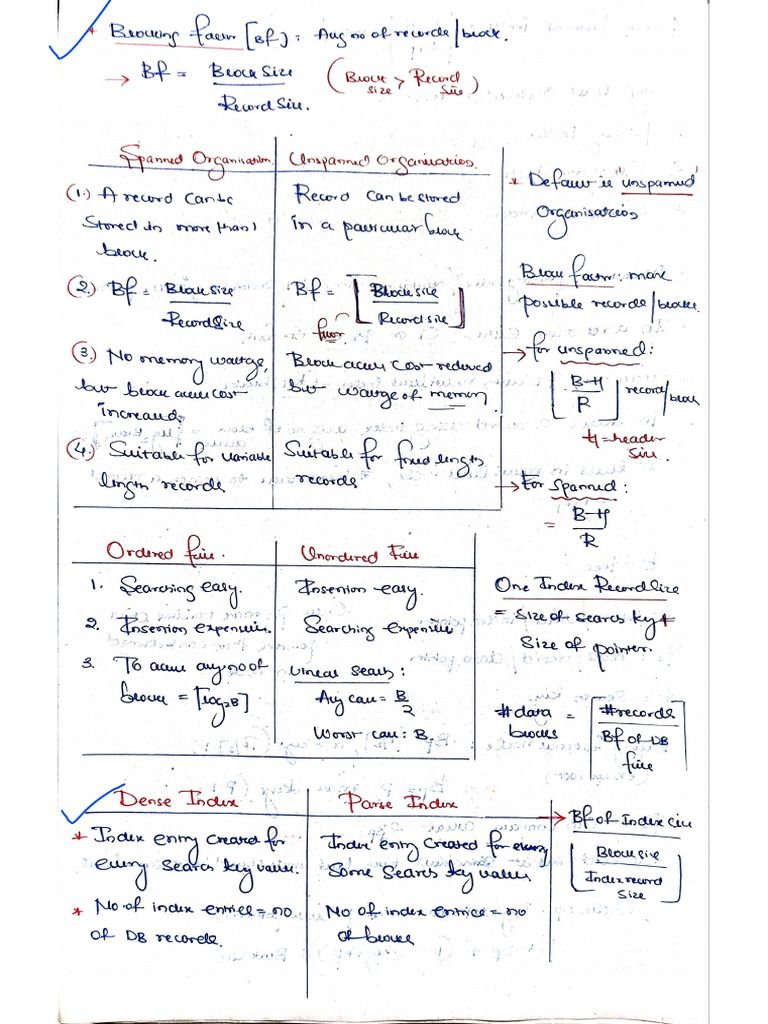 * Blocking factor [Bf] : Avg no of records/block.
→ Bf = Block Size / Record Size. (Block size > Record size)
Spanned Organisation.
(1.) A record can be
stored in more than 1
block.
(2.) Bf = Block size / Record Size
(3.) No memory wastage,
but block access cost
increased.
(4.) Suitable for variable
length records
Unspanned Organisation.
Record can be stored
in a particular block
Bf = ⌊Block size / Record size⌋
floor
Block access cost reduced
but wastage of memory
Suitable for fixed length
records
* Default is "unspanned"
Organisation
Block factor: max
possible records/block.
→ for unspanned:
⌊B-H / R⌋ record/block
H = header
size.
→ For Spanned:
= B-H / R
Ordered file.
1. Searching easy.
2. Insertion expensive.
3. To access any no of
block = ⌈log₂B⌉
Unordered File
Insertion easy.
Searching expensive
Linear search:
Avg case = B/2
Worst case: B.
One Index Record Size
= Size of search key +
Size of pointer.
#data
blocks = ⌈#records / Bf of DB
file⌉
Dense Index
* Index entry created for
every search key value.
* No of index entries = no
of DB records.
Parse Index
Index entry created for
Some Search key values
No of index entries = no
of block
→ Bf of Index file
⌊Block size / Index record
Size⌋